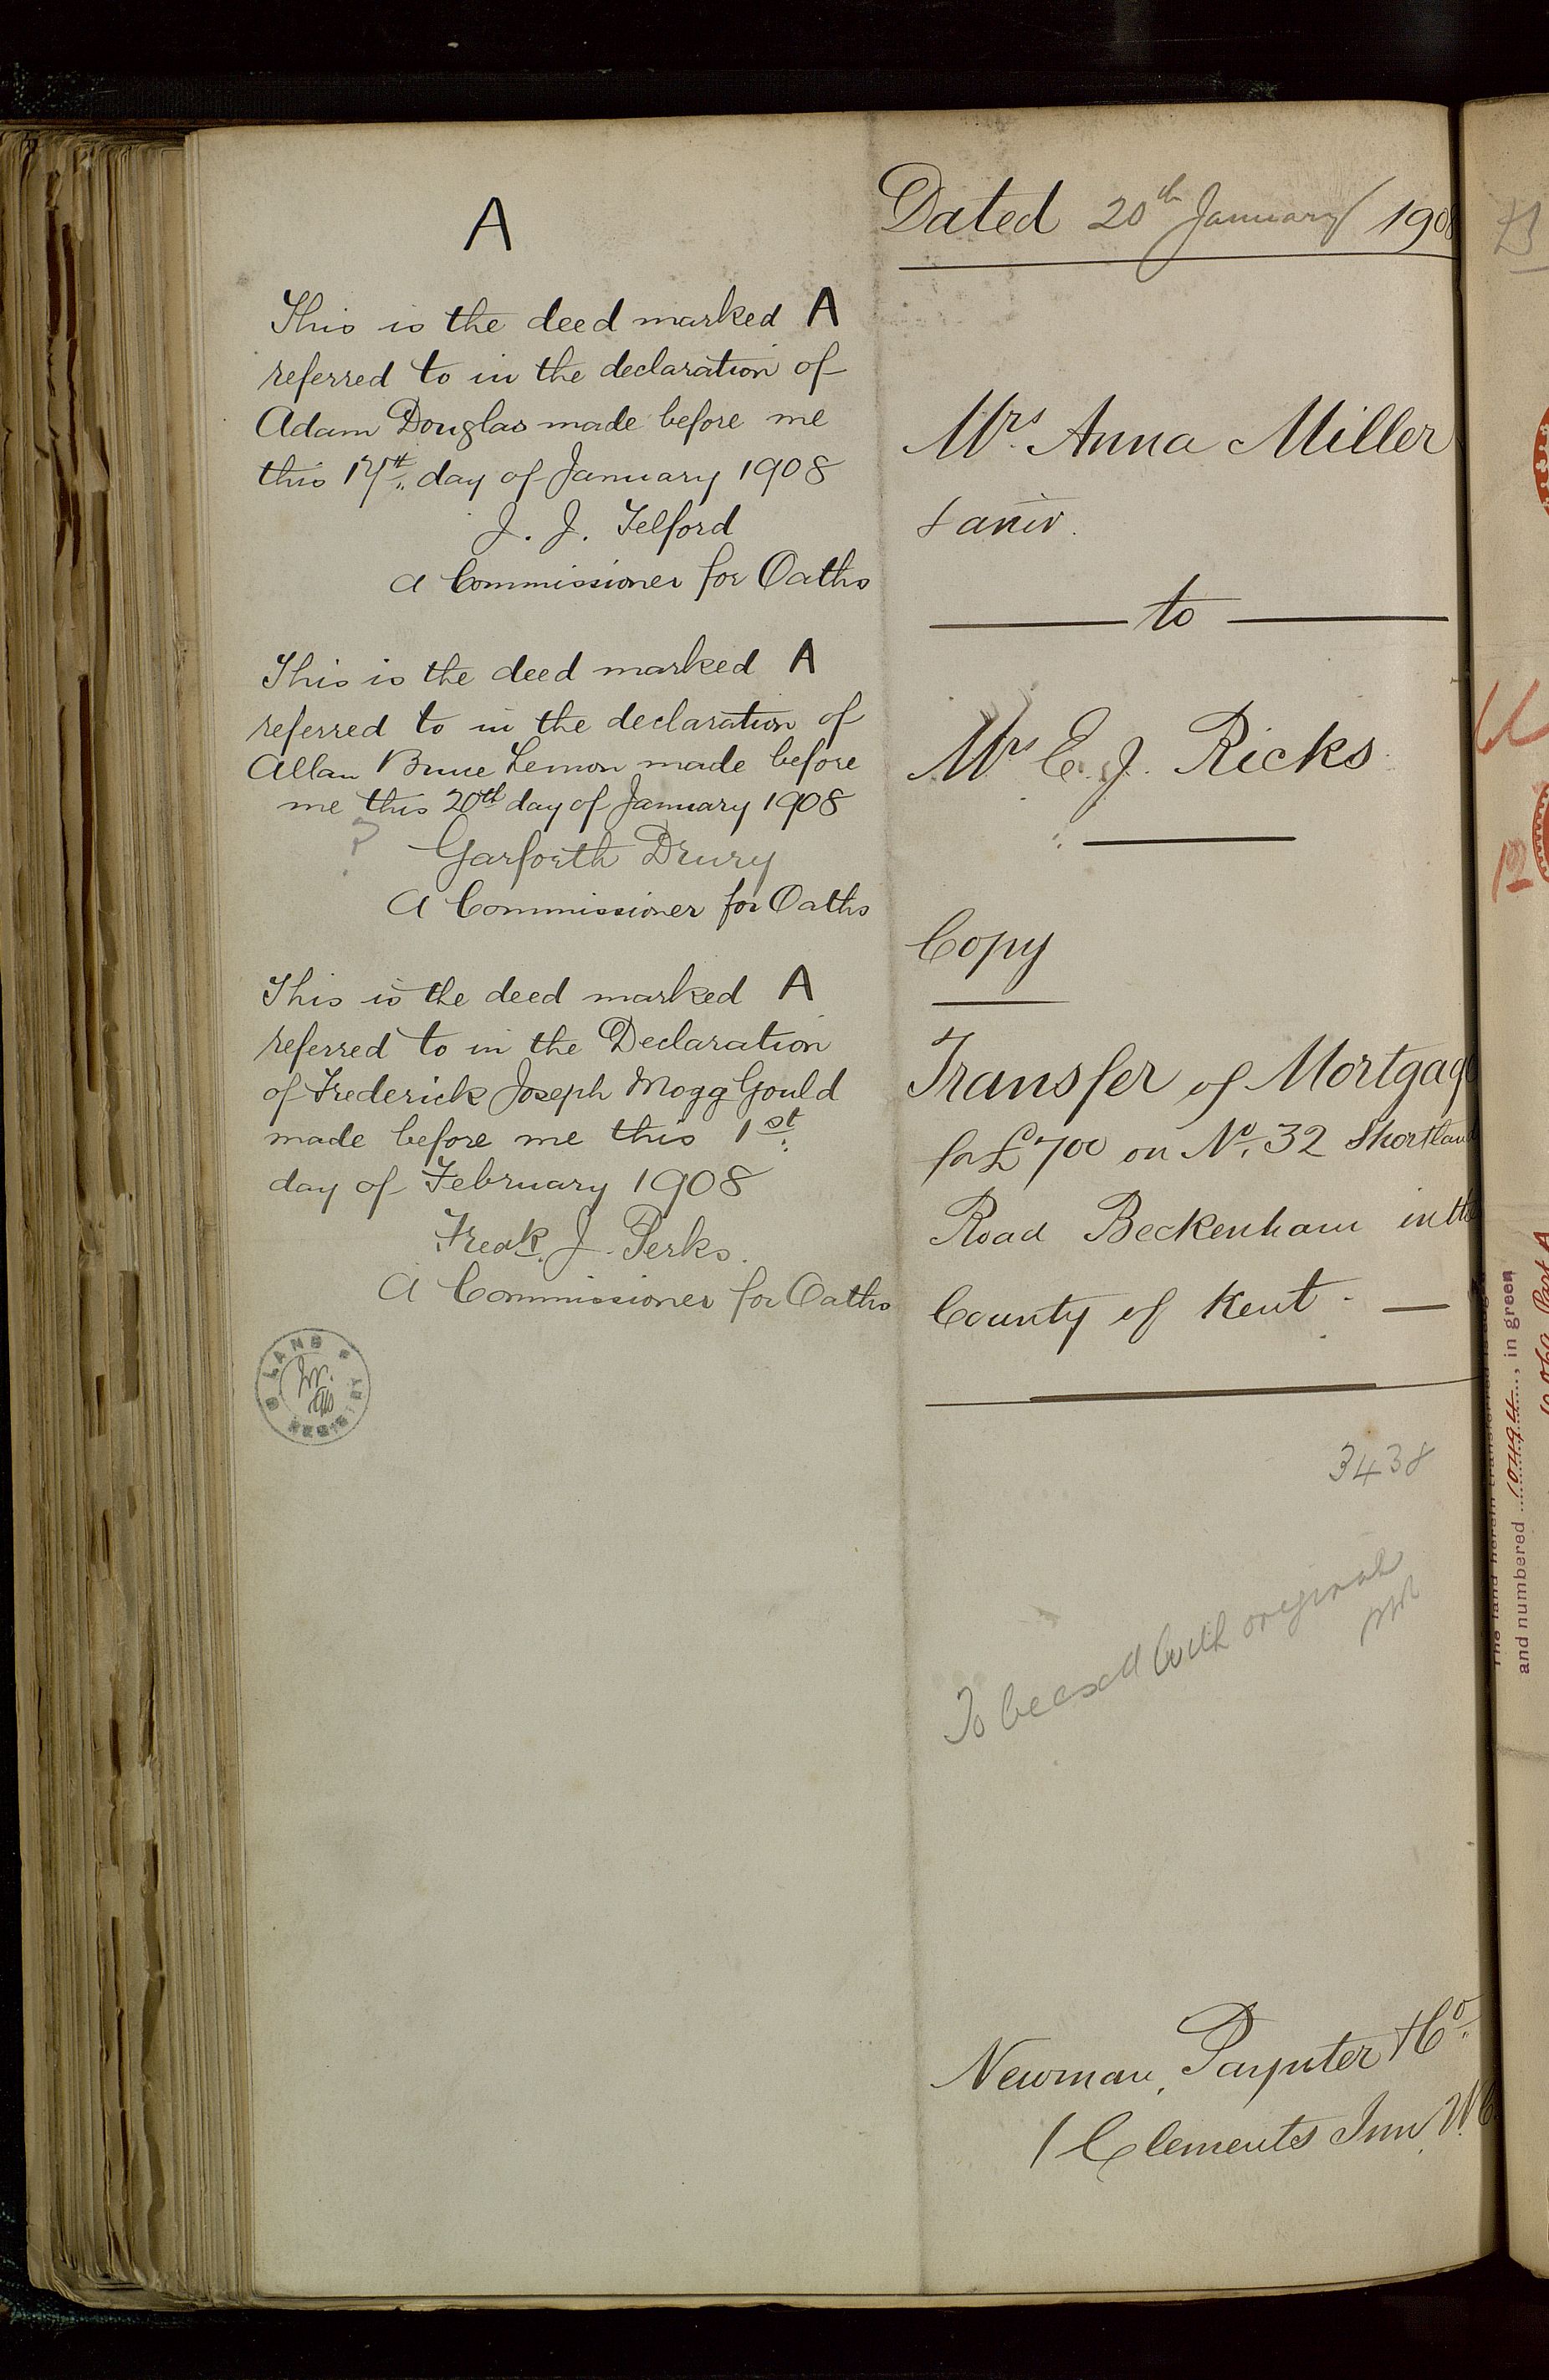 A
This is the deed marked A
referred to in the declaration of
Adam Douglas made before me
this 17th day of January 1908
J. J. Telford
A Commissioner for Oaths
This is the deed marked A
referred to in the declaration of
Allan Bruce Lemon made before
me this 20th day of January 1908
Garforth Drury
A Commissioner for Oaths
This is the deed marked A
referred to in the Declaration
of Frederick Joseph Mogg Gould
made before me this 1st
day of February 1908
Fredk. J. Perks.
A Commissioner for Oaths
LAND REGISTRY
Dated 20th January 1908
Mrs. Anna Miller
& anir.
to
Mrs E. J. Ricks
Copy
Transfer of Mortgage
for £700 on No. 32 Shortland
Road Beckenham in the
County of Kent.
3438
To be exd with original
Newman, Paynter & Co.
1 Clements Inn W.C.
and numbered 10494, in green
12